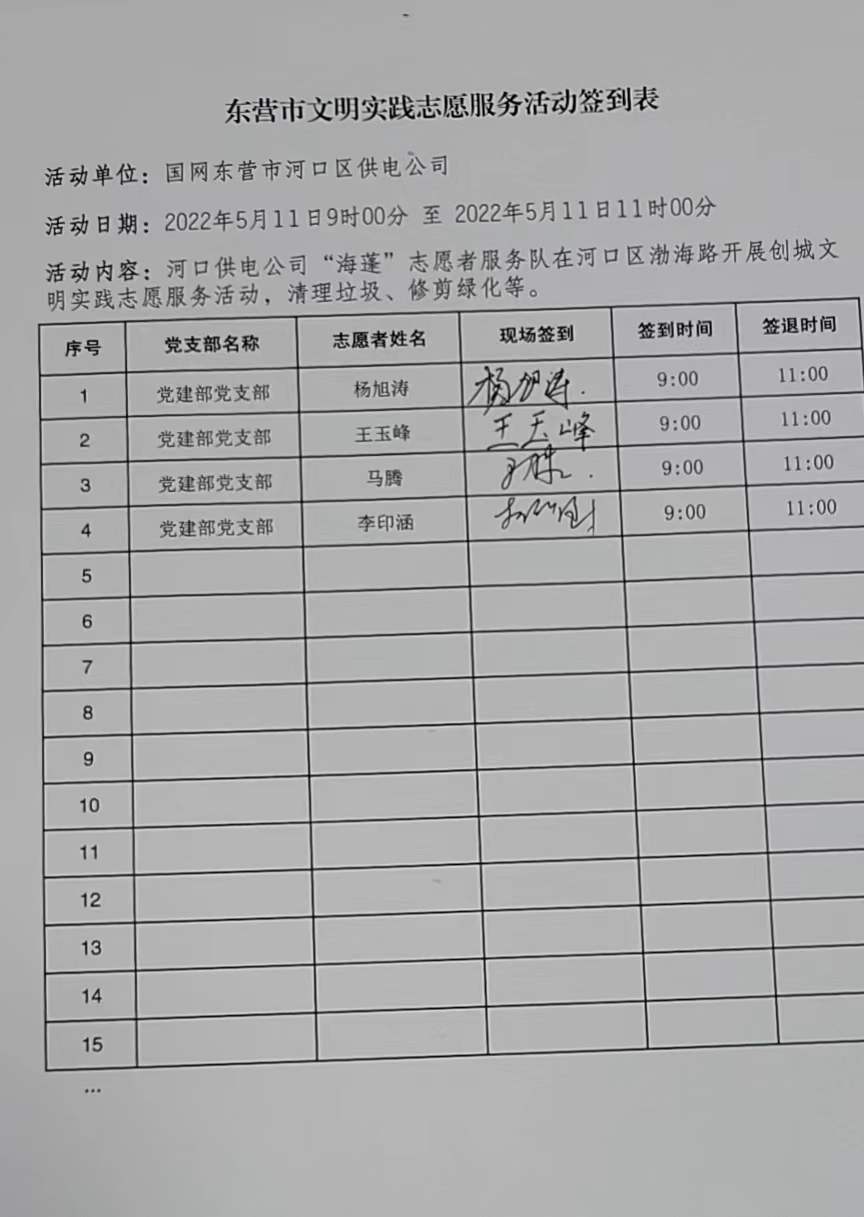 东营市文明实践志愿服务活动签到表
活动单位：国网东营市河口区供电公司
活动日期：2022年5月11日9时00分 至 2022年5月11日11时00分
活动内容：河口供电公司“海蓬”志愿者服务队在河口区渤海路开展创城文
明实践志愿服务活动，清理垃圾、修剪绿化等。
序号 党支部名称 志愿者姓名 现场签到 签到时间 签退时间
1 党建部党支部 杨旭涛 杨旭涛 9:00 11:00
2 党建部党支部 王玉峰 9:00 11:00
3 党建部党支部 马腾 9:00 11:00
4 党建部党支部 李印涵 9:00 11:00
5
6
7
8
9
10
11
12
13
14
15
...